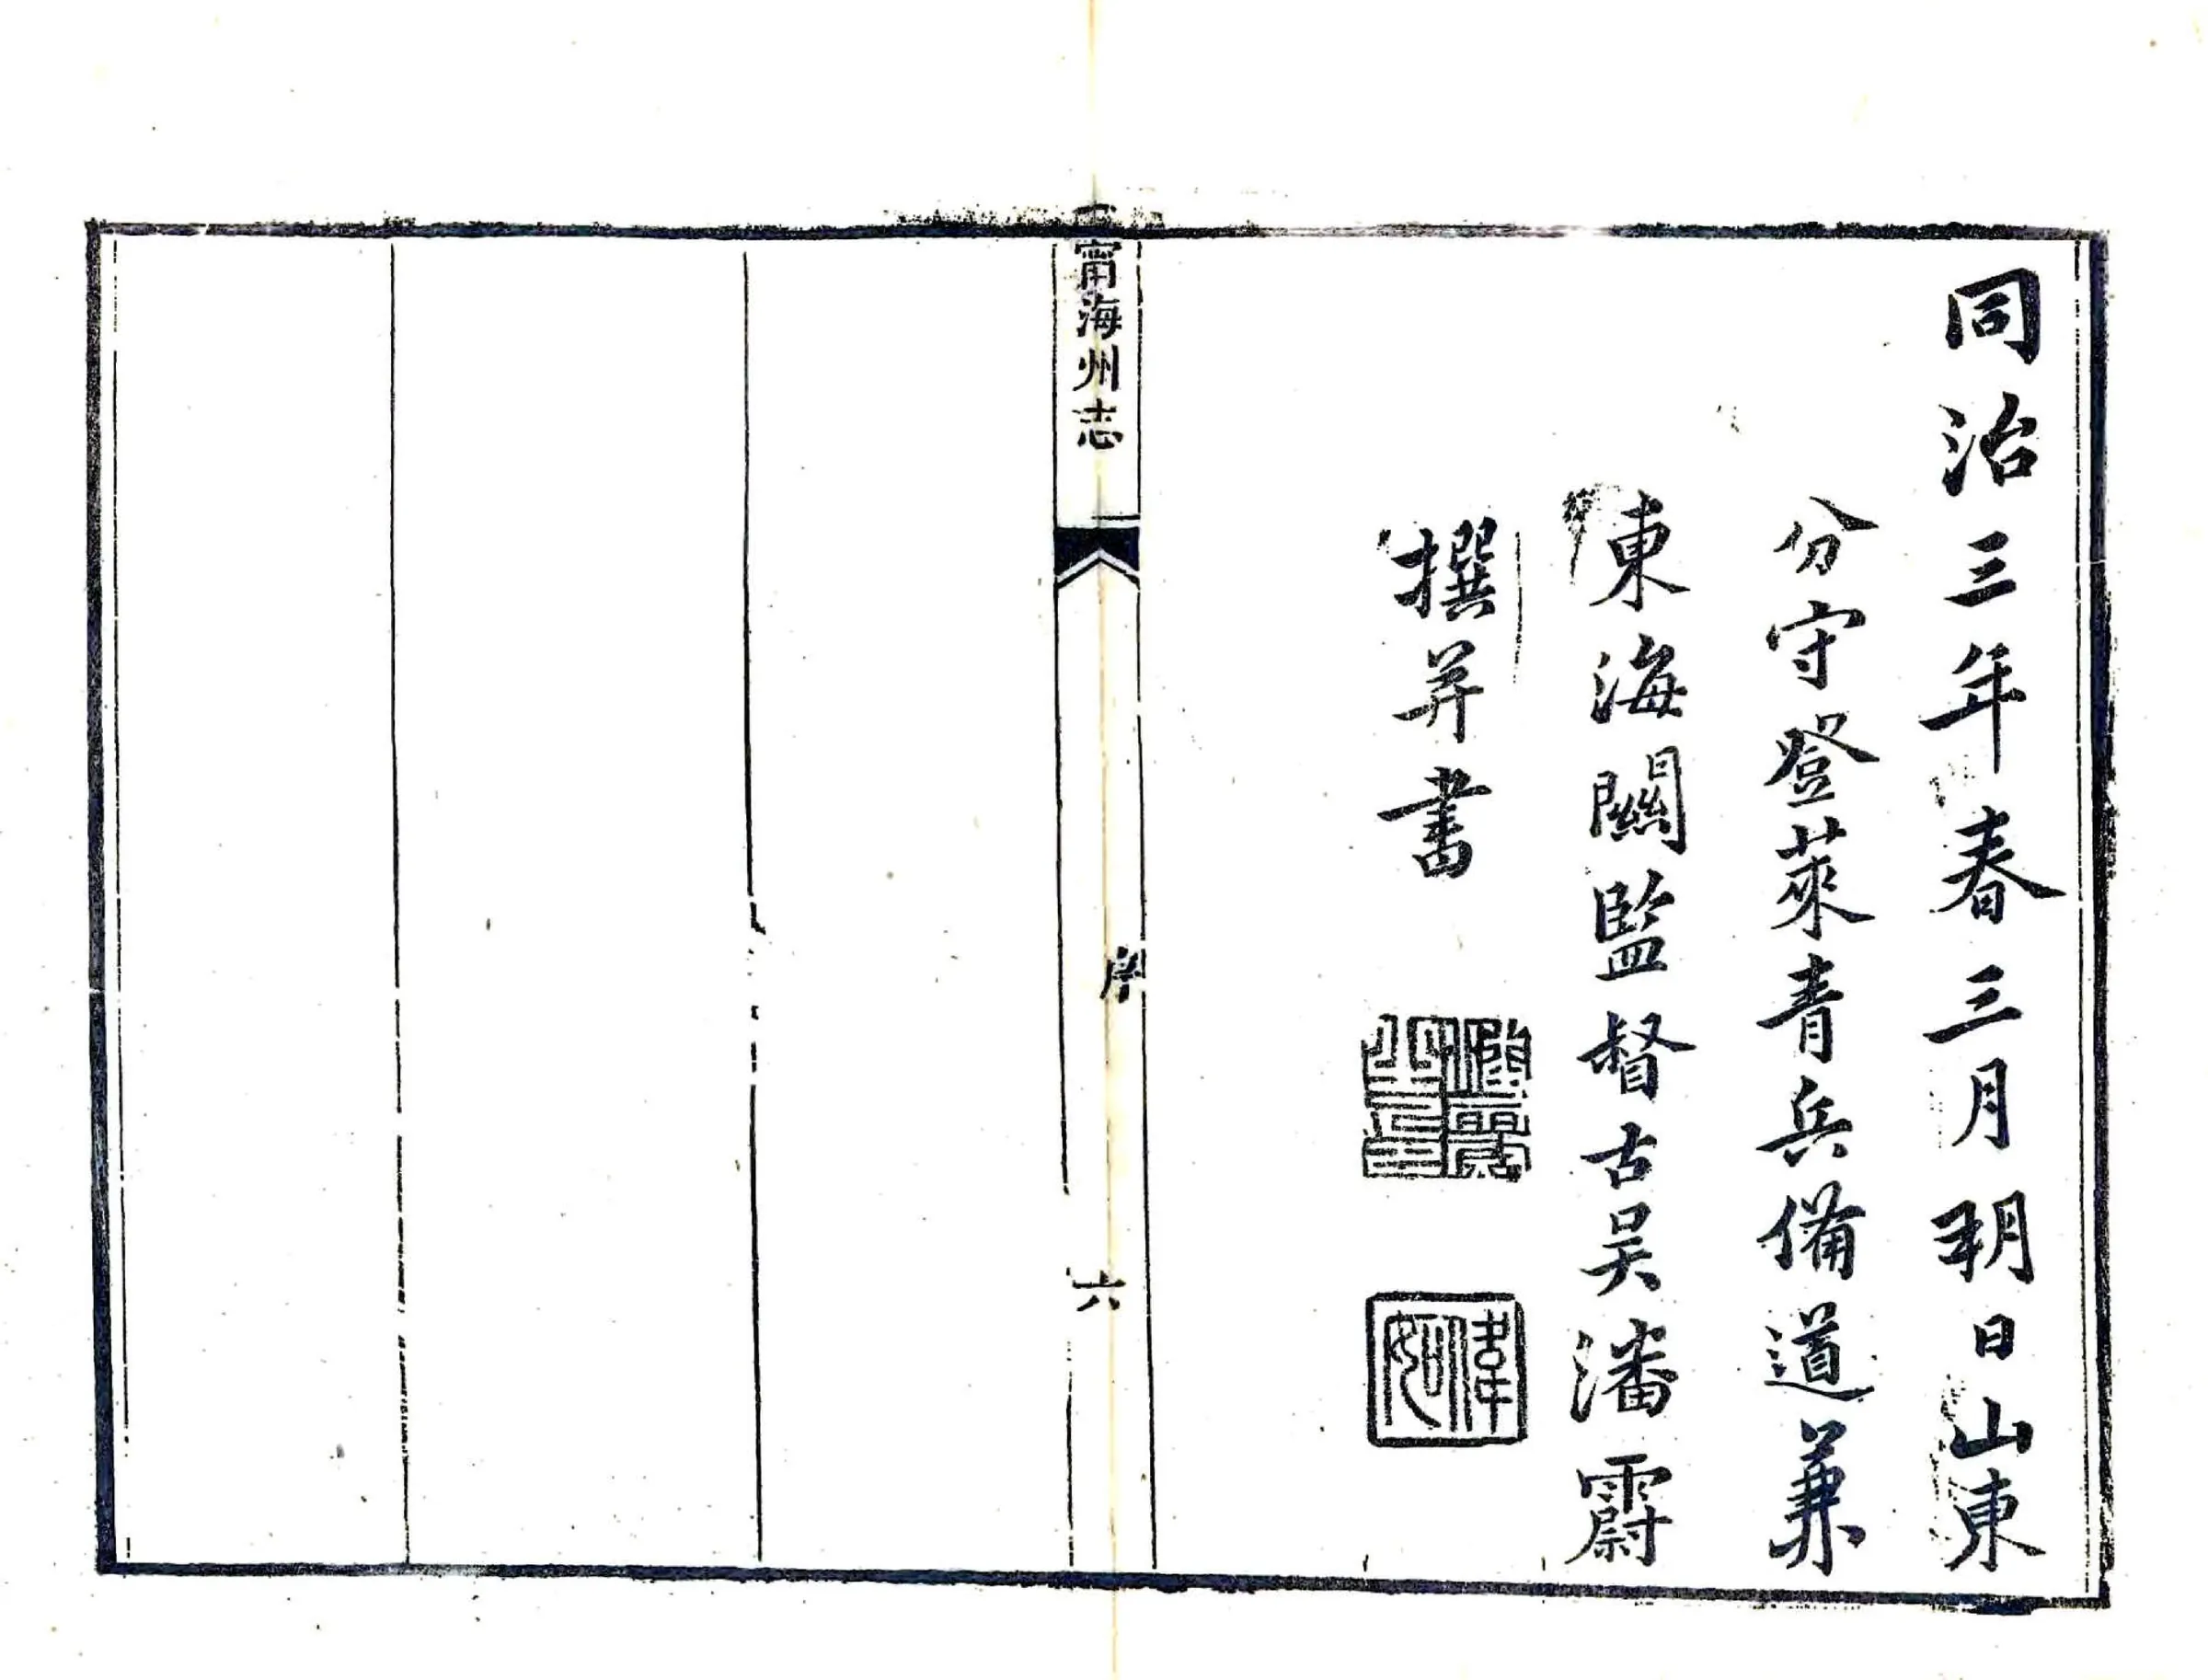 同治三年春三月朔日山東
分守登萊青兵備道兼
東海關監督古吳潘霨
撰并書
潘霨之印
偉如
甯海州志
序
六